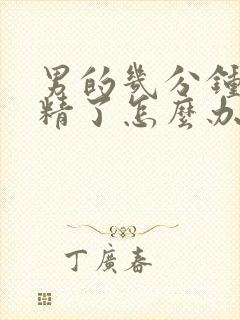 男的幾分鐘
精了怎麼办
丁廣春